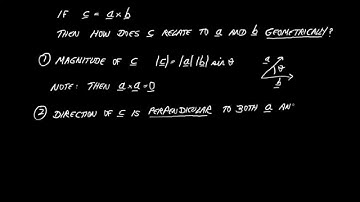 IF c = a × b
THEN HOW DOES c RELATE TO a AND b GEOMETRICALLY?
① MAGNITUDE OF c |c| = |a| |b| sin θ
a
θ
b
NOTE: THEN a × a = 0
② DIRECTION OF c IS PERPENDICULAR TO BOTH a AN